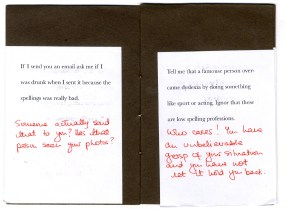 If I send you an email ask me if I
was drunk when I sent it because the
spellings was really bad.
Someone actually said
that to you? Has that
person seen your photos?
Tell me that a famouse person over
came dyslexia by doing something
like sport or acting. Ignor that these
are less spelling professions.
Who cares! You have
an unbelievable
grasp of your situation
and you have not
let it hold you back.